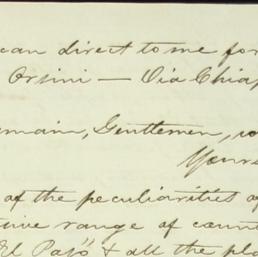 can direct to me for
Orsini — Via Chia
main, Gentlemen,
Yours
of the peculiarities of
tive range of coun
El Paso & all the pla